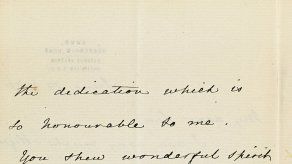 the dedication which is
so honourable to me.
You shew wonderful spirit